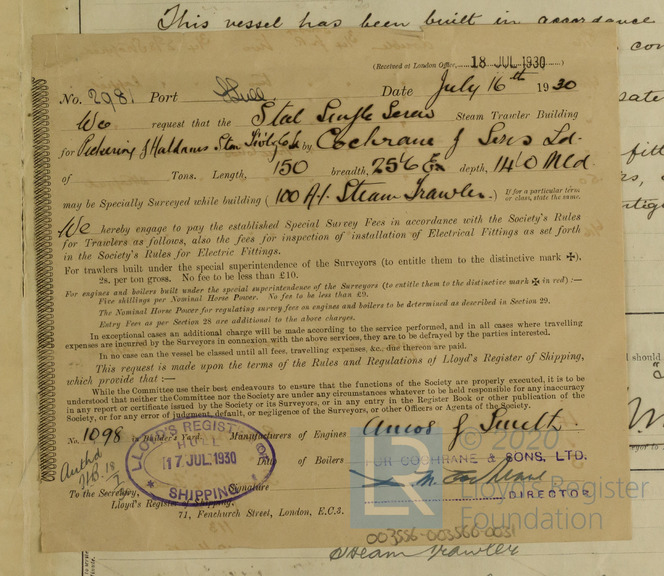 This vessel has been built in accordance
(Received at London Office, 18 JUL 1930)
No. 298. Port Hull Date July 16th 1930
We request that the Steel Single Screw Steam Trawler Building
for Pickering & Haldanes Steam Fishing Co Ld by Cochrane & Sons Ld.
of Tons. Length, 150 breadth, 25'6 Ex depth, 14'0 Mld.
may be Specially Surveyed while building (100 A.1. Steam Trawler.) If for a particular term
or class, state the same.
We hereby engage to pay the established Special Survey Fees in accordance with the Society's Rules
for Trawlers as follows, also the fees for inspection of installation of Electrical Fittings as set forth
in the Society's Rules for Electric Fittings.
For trawlers built under the special superintendence of the Surveyors (to entitle them to the distinctive mark ✠).
2s. per ton gross. No fee to be less than £10.
For engines and boilers built under the special superintendence of the Surveyors (to entitle them to the distinctive mark ✠ in red) :—
Five shillings per Nominal Horse Power. No fee to be less than £9.
The Nominal Horse Power for regulating survey fees on engines and boilers to be determined as described in Section 29.
Entry Fees as per Section 28 are additional to the above charges.
In exceptional cases an additional charge will be made according to the service performed, and in all cases where travelling
expenses are incurred by the Surveyors in connexion with the above services, they are to be defrayed by the parties interested.
In no case can the vessel be classed until all fees, travelling expenses, &c., due thereon are paid.
This request is made upon the terms of the Rules and Regulations of Lloyd's Register of Shipping,
which provide that :—
While the Committee use their best endeavours to ensure that the functions of the Society are properly executed, it is to be
understood that neither the Committee nor the Society are under any circumstances whatever to be held responsible for any inaccuracy
in any report or certificate issued by the Society or its Surveyors, or in any entry in the Register Book or other publication of the
Society, or for any error of judgment, default, or negligence of the Surveyors, or other Officers or Agents of the Society.
No. 1098 in Builder's Yard. Manufacturers of Engines Amos & Smith.
LLOYD'S REGISTER
HULL
17 JUL 1930
SHIPPING
Date of Boilers
FOR COCHRANE & SONS, LTD.
To the Secretary, Signature
DIRECTOR
Lloyd's Register of Shipping,
71, Fenchurch Street, London, E.C.3.
LR © 2020
Lloyd's Register
Foundation
003556-003566-0031
Steam Trawler